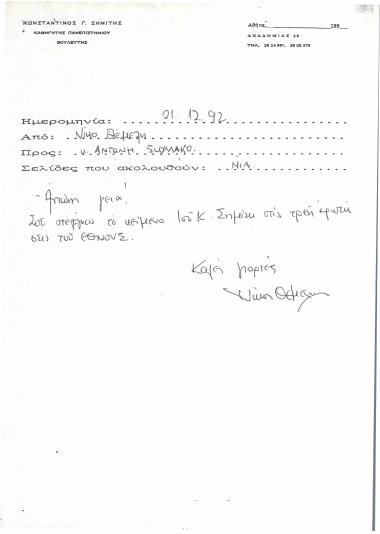 ΚΩΝΣΤΑΝΤΙΝΟΣ Γ. ΣΗΜΙΤΗΣ
ΚΑΘΗΓΗΤΗΣ ΠΑΝΕΠΙΣΤΗΜΙΟΥ
ΒΟΥΛΕΥΤΗΣ
Αθήνα 199
ΑΚΑΔΗΜΙΑΣ
ΤΗΛ.
Ημερομηνία: 21.12.92
Από: Νίκο Θέμελη
Προς: κ. ΑΝΤΩΝΗ
Σελίδες που ακολουθούν: ΜΙΑ
- Αντώνη γειά!
Σου στέλνω το κείμενο του Κ. Σημίτη στις τρείς ερωτή
σεις του ΕΘΝΟΥΣ.
Καλές γιορτές
Νίκος Θέμελης